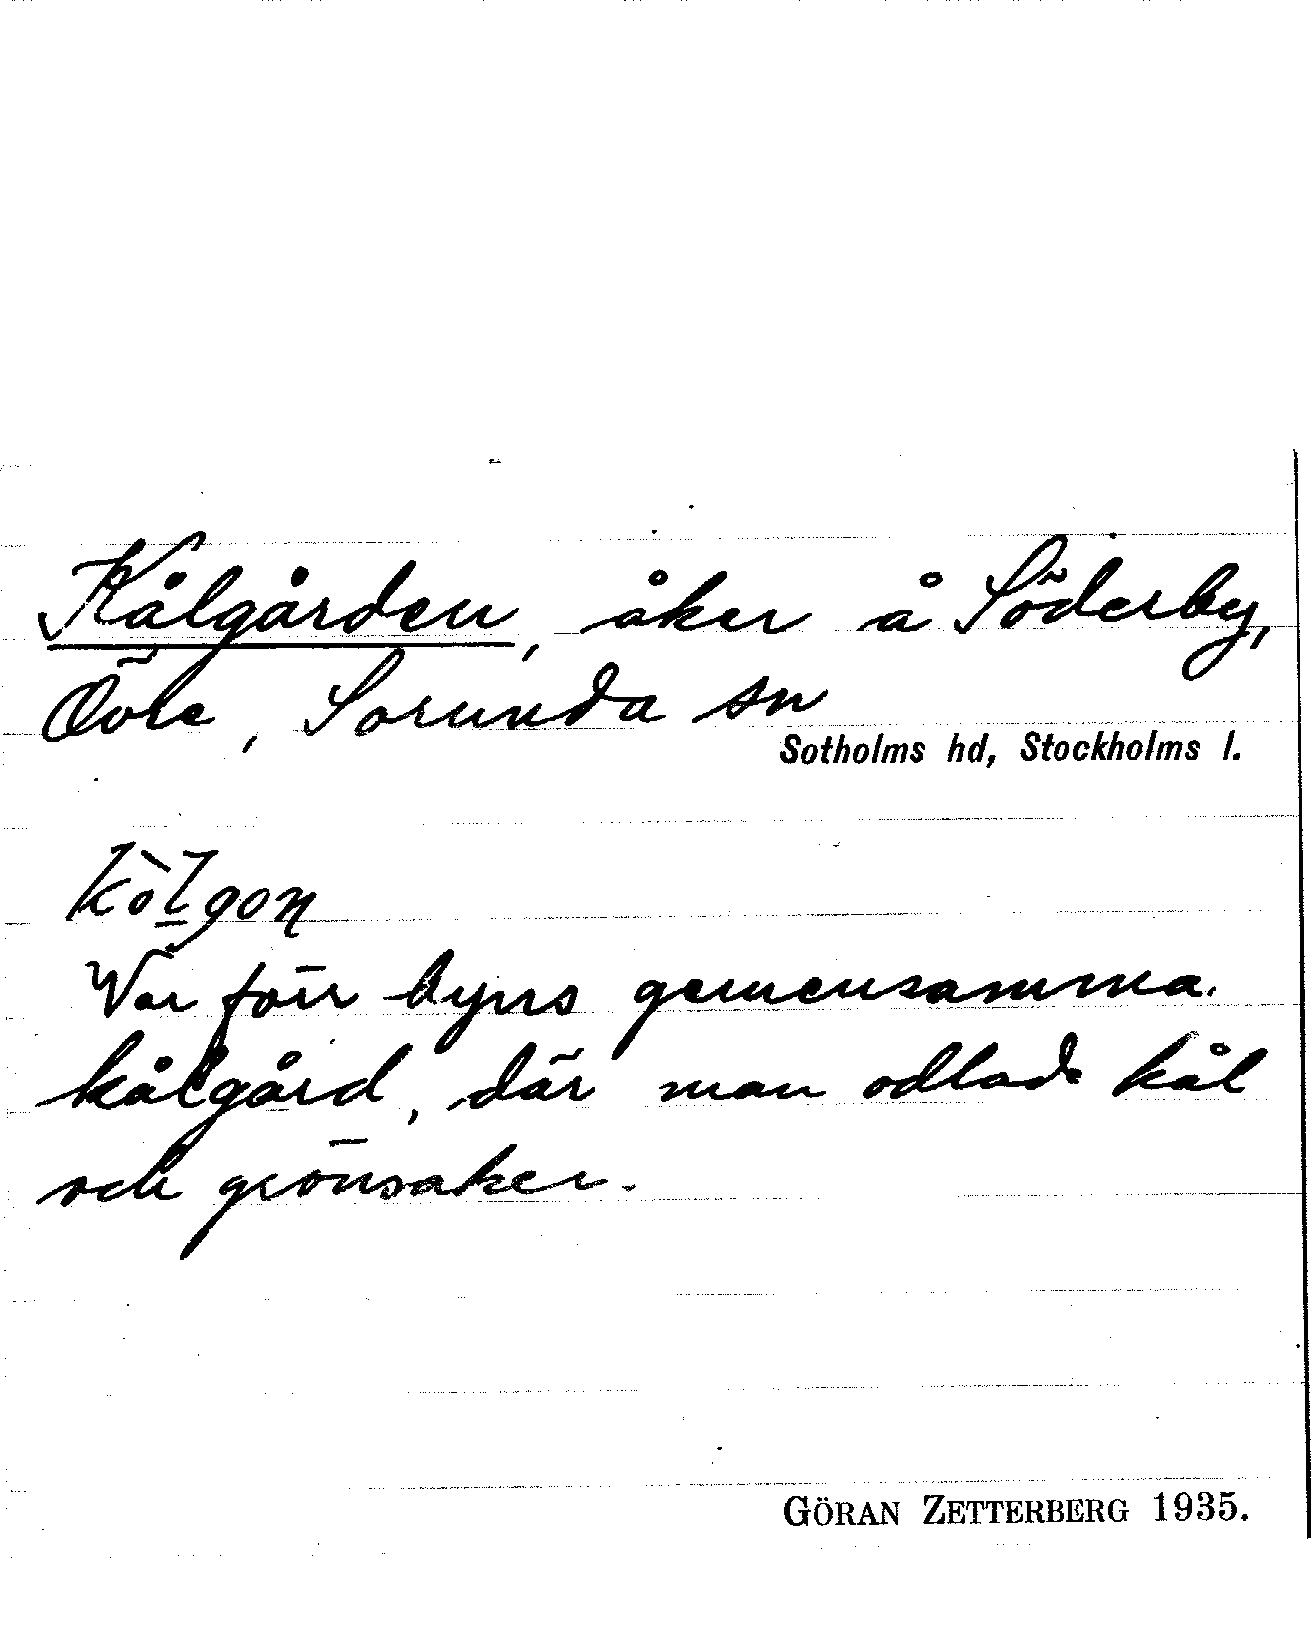 Kålgården, åker å Söderby,
Övre, Sorunda sn
Sotholms hd, Stockholms l.
kò̀lgon
Var förr byns gemensamma
kålgård, där man odlade kål
och grönsaker.
GÖRAN ZETTERBERG 1935.